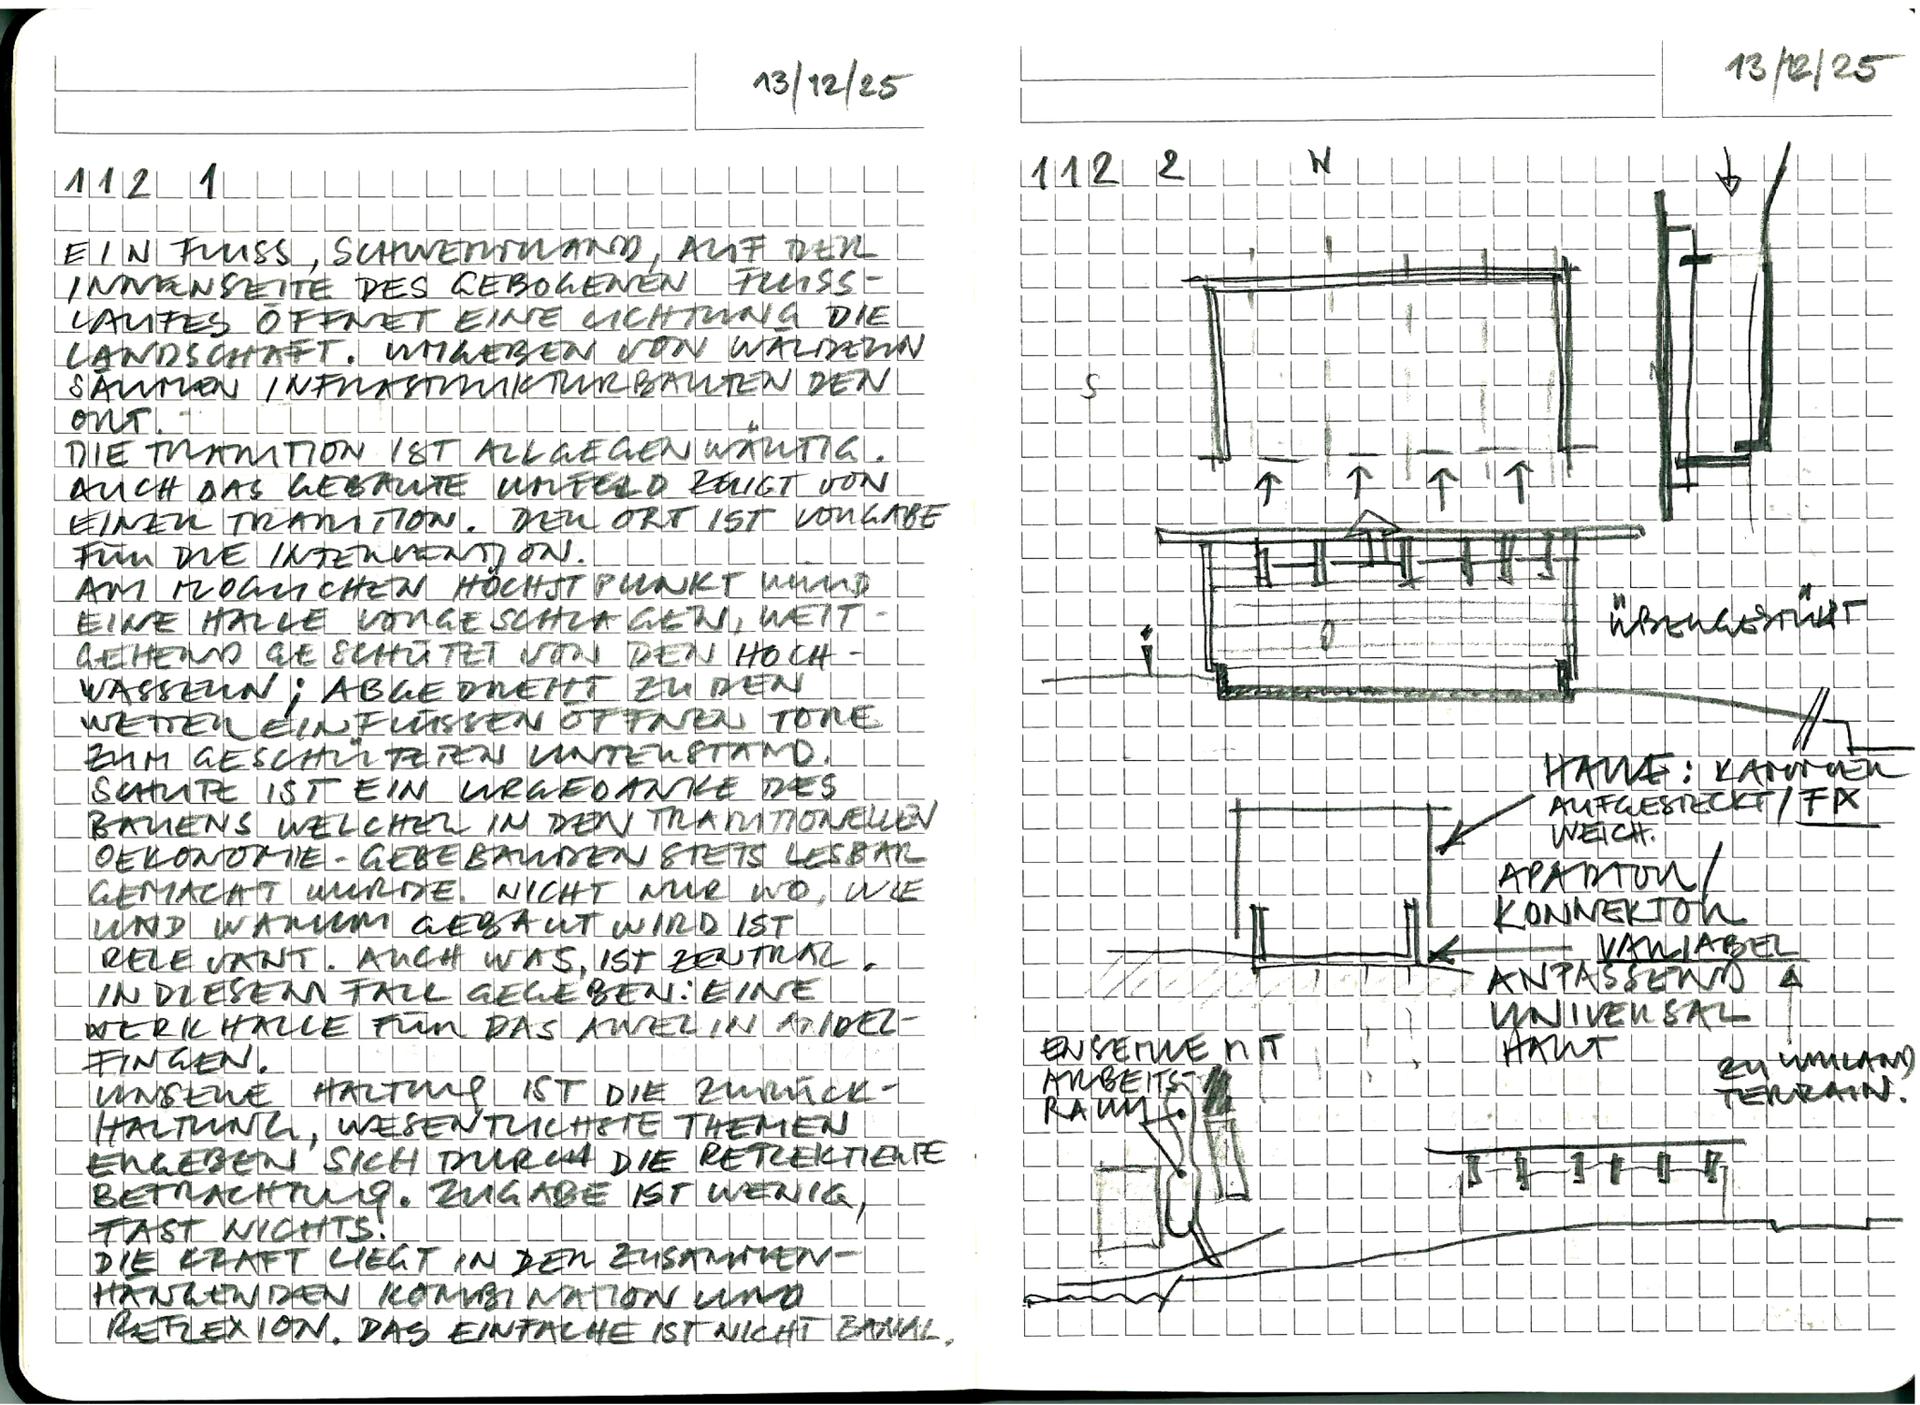 13/12/25
112 1
EIN FLUSS, SCHWEMMLAND, AUF DER
INNENSEITE DES GEBOGENEN FLUSS-
LAUFES ÖFFNET EINE LICHTUNG DIE
LANDSCHAFT. UMGEBEN VON WÄLDERN
SÄUMEN INFRASTRUKTURBAUTEN DEN
ORT.
DIE TRADITION IST ALLGEGENWÄRTIG.
AUCH DAS GEBAUTE UMFELD ZEUGT VON
EINER TRADITION. DER ORT IST VORGABE
FÜR DIE INTERVENTION.
AM MÖGLICHEN HÖCHSTPUNKT WIRD
EINE HALLE VORGESCHLAGEN, WEIT-
GEHEND GESCHÜTZT VON DEN HOCH-
WASSERN; ABGEDREHT ZU DEN
WETTEREINFLÜSSEN ÖFFNEN TORE
ZUM GESCHÜTZTEN UNTERSTAND.
SCHUTZ IST EIN URGEDANKE DES
BAUENS WELCHER IN DEN TRADITIONELLEN
OEKONOMIE-GEBEBAUDEN STETS LESBAR
GEMACHT WURDE. NICHT NUR WO, WIE
UND WARUM GEBAUT WIRD IST
RELEVANT. AUCH WAS, IST ZENTRAL.
IN DIESEM FALL GEGEBEN: EINE
WERKHALLE FÜR DAS AWEL IN ANDEL-
FINGEN.
UNSERE HALTUNG IST DIE ZURÜCK-
HALTUNG, WESENTLICHSTE THEMEN
ERGEBEN SICH DURCH DIE REFLEKTIERTE
BETRACHTUNG. ZUGABE IST WENIG,
FAST NICHTS!
DIE KRAFT LIEGT IN DER ZUSAMMEN-
HÄNGENDEN KOMBINATION UND
REFLEXION. DAS EINFACHE IST NICHT BANAL.
13/12/25
112 2 N
S
O
ÜBERGESTÜLPT
HALLE: KAMMER
AUFGESTECKT / FIX
WEICH.
KONNEKTOR
VARIABEL
ANPASSEND
UNIVERSAL
HART
ZU UMLAND
TERRAIN.
ENSEMBLE MIT
ARBEITS-
RAUM